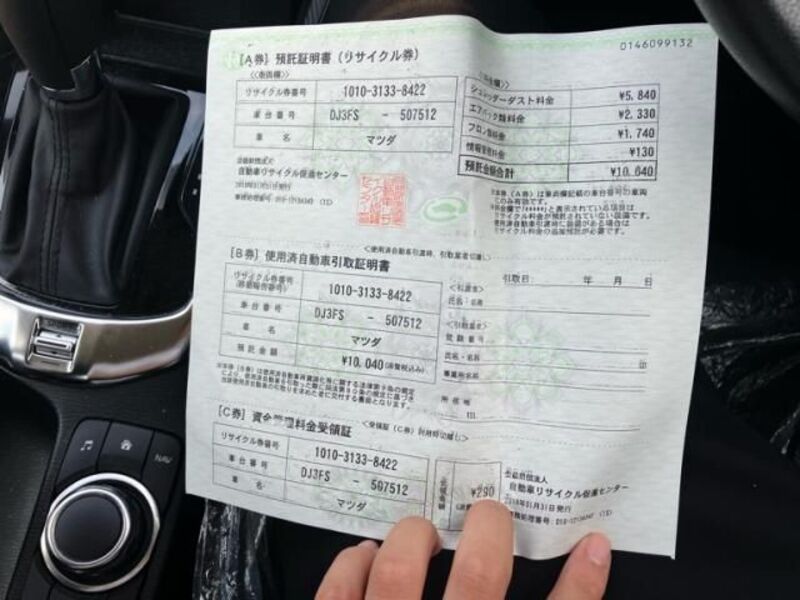 0146099132
[A券] 預託証明書(リサイクル券)
リサイクル券番号 1010-3133-8422
車台番号 DJ3FS - 507512
車名 マツダ
シュレッダーダスト料金 ¥5,840
エアバッグ類料金 ¥2,330
フロン類料金 ¥1,740
情報管理料金 ¥130
預託金額合計 ¥10,040
自動車リサイクル促進センター
<使用済自動車引渡時、引取業者切離し>
[B券] 使用済自動車引取証明書
リサイクル券番号
(移動報告番号) 1010-3133-8422
車台番号 DJ3FS - 507512
車名 マツダ
預託金額 ¥10,040(消費税込み)
引取日: 年 月 日
氏名・名称
登録番号
氏名・名称
事業所名称
所在地
印
<受領証(C券)利用時切離し>
[C券] 資金管理料金受領証
リサイクル券番号 1010-3133-8422
車台番号 DJ3FS - 507512
車名 マツダ
¥290
自動車リサイクル促進センター
NAV